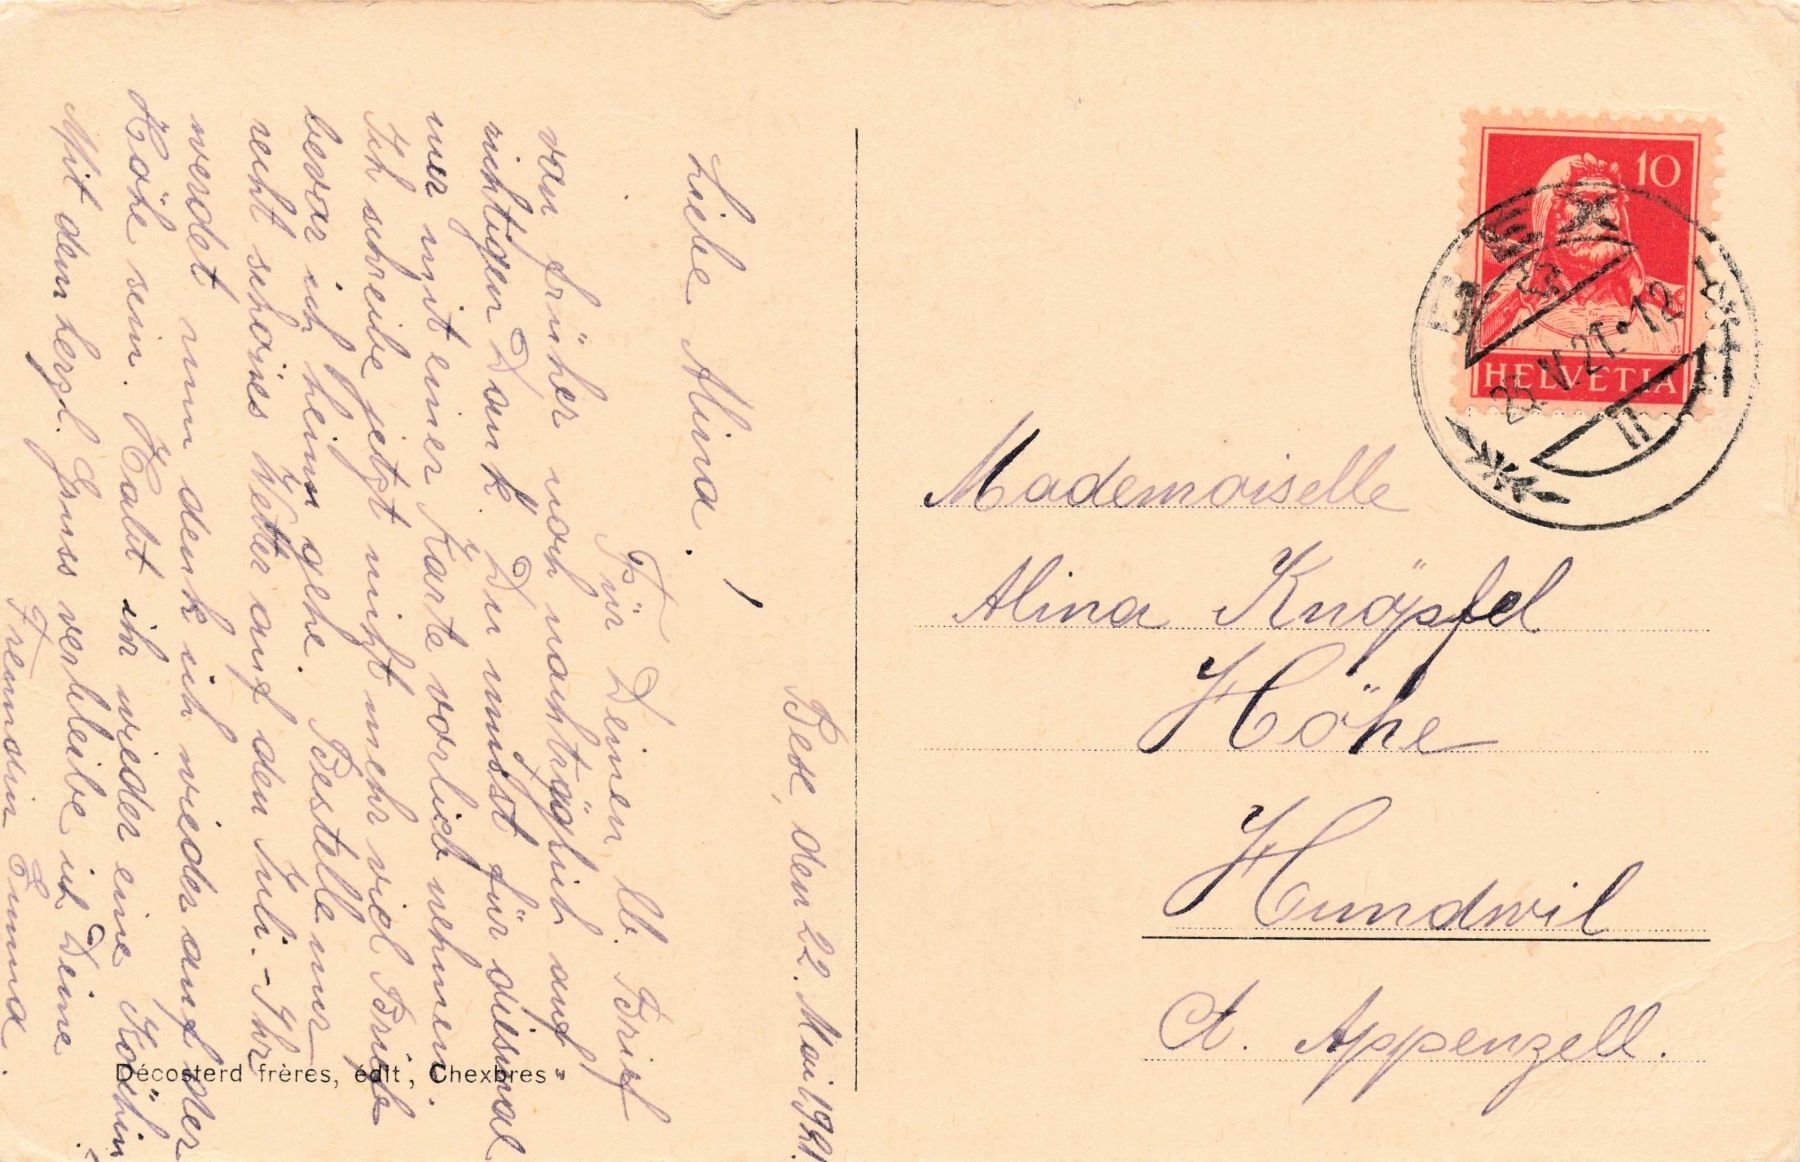 Bex, den 22. Mai 1921.
Liebe Alina!
Für Deinen lb. Brief
von früher noch nachträglich auf-
richtigen Dank. Du musst für diesmal
nur mit einer Karte vorlieb nehmen.
Ich schreibe jetzt nicht mehr viel Briefe
bevor ich heim gehe. Bestelle nur
recht schönes Wetter auf den Juli. - Ihr
werdet nun denk ich wieder auf der
Höhe sein. Habt ihr wieder eine Köchin
Mit dem herzl. Gruss verbleibe ich Deine
Freundin Emma.
Décosterd frères, édit, Chexbres
10
HELVETIA
BEX
25.V.21.-12
Mademoiselle
Alina Knöpfel
Höhe
Hundwil
Ct. Appenzell.